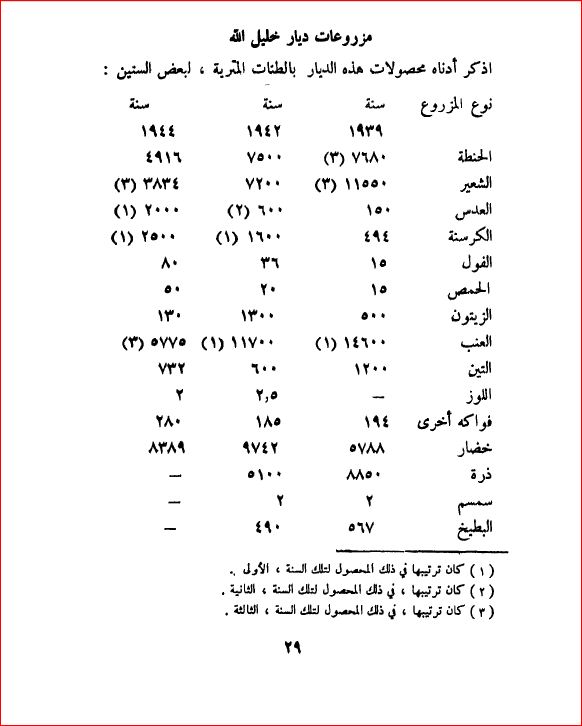 مزروعات ديار خليل الله
اذكر أدناه محصولات هذه الديار بالطنات المترية ، لبعض السنين :
نوع المزروع سنة سنة سنة
١٩٣٩ ١٩٤٢ ١٩٤٤
الحنطة ٧٦٨٠ (٣) ٧٥٠٠ ٤٩١٦
الشعير ١١٥٥٠ (٣) ٧٢٠٠ ٣٨٣٤ (٣)
العدس ١٥٠ ٦٠٠ (٢) ٢٠٠٠ (١)
الكرسنة ٤٩٤ ١٦٠٠ (١) ٢٥٠٠ (١)
الفول ١٥ ٣٦ ٨٠
الحمص ١٥ ٢٠ ٥٠
الزيتون ٥٠٠ ١٣٠٠ ١٣٠
العنب ١٤٦٠٠ (١) ١١٧٠٠ (١) ٥٧٧٥ (٣)
التين ١٢٠٠ ٦٠٠ ٧٣٢
اللوز — ٢,٥ ٢
فواكه أخرى ١٩٤ ١٨٥ ٢٨٠
خضار ٥٧٨٨ ٩٧٤٢ ٨٣٨٩
ذرة ٨٨٥٠ ٥١٠٠ —
سمسم ٢ ٢ —
البطيخ ٥٦٧ ٤٩٠ —
(١) كان ترتيبها في ذلك المحصول لتلك السنة ، الأولى .
(٢) كان ترتيبها ، في ذلك المحصول لتلك السنة ، الثانية .
(٣) كان ترتيبها ، في ذلك المحصول لتلك السنة ، الثالثة .
٢٩